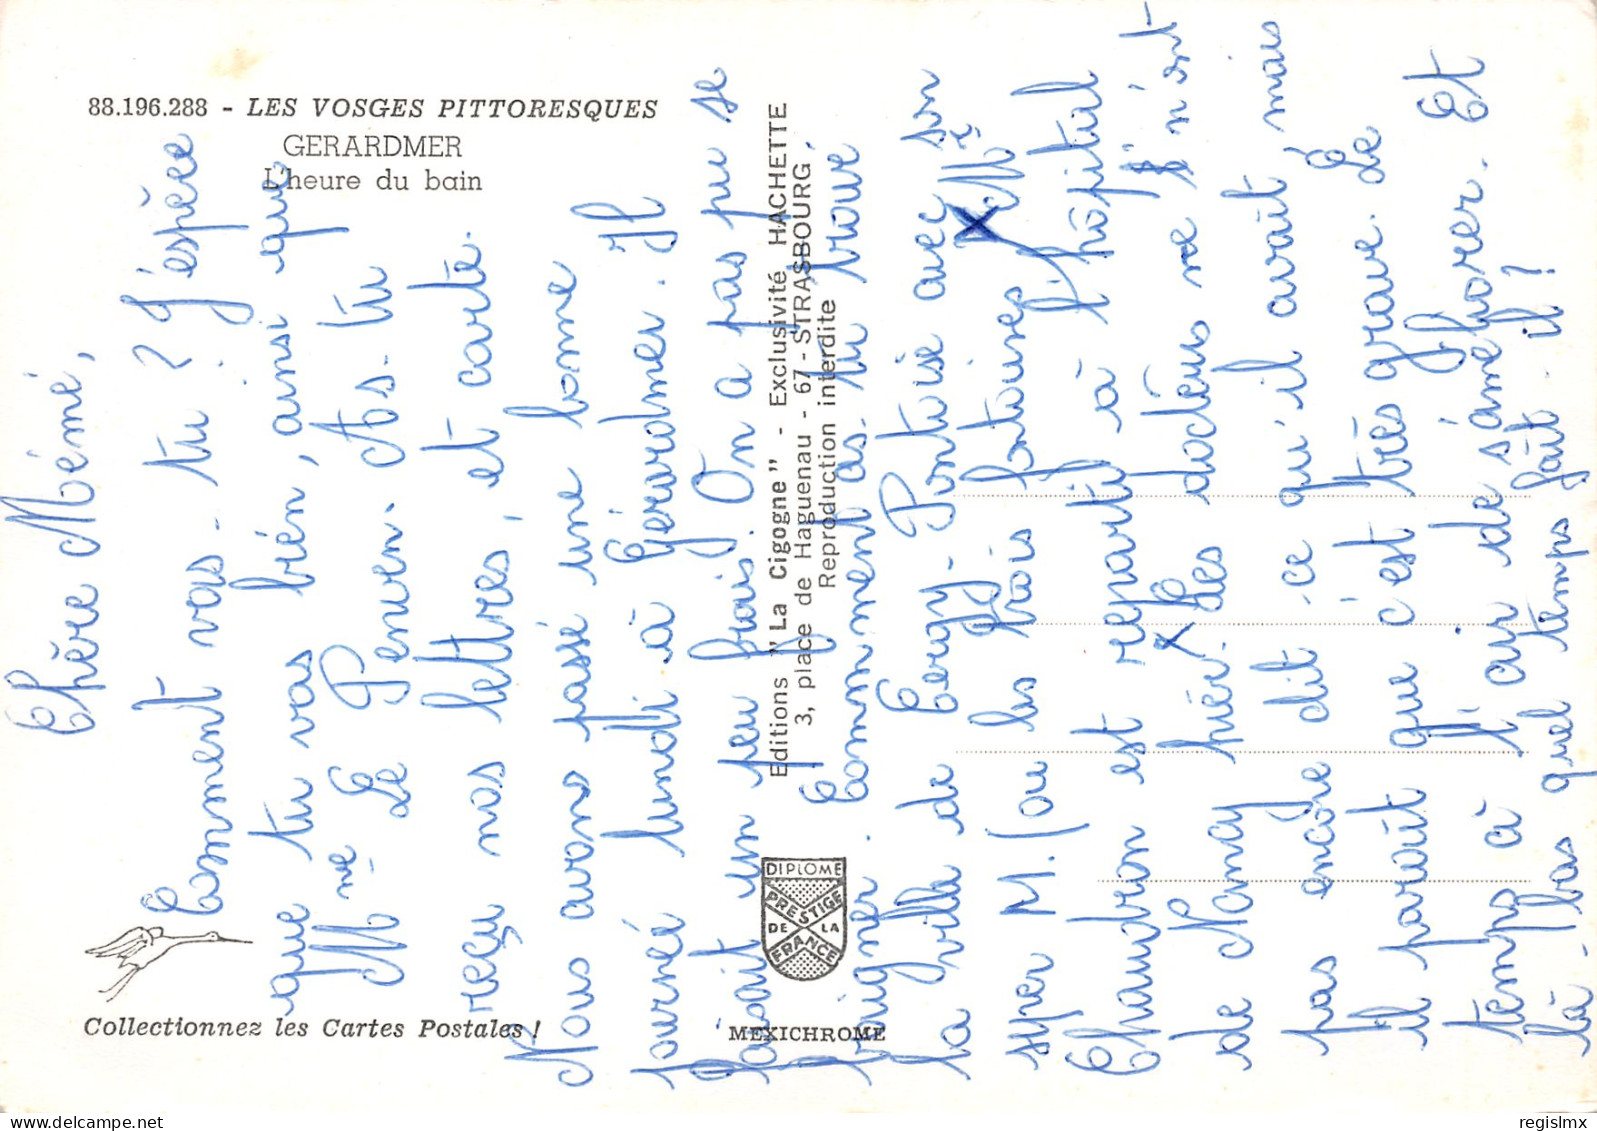 88.196.288 - LES VOSGES PITTORESQUES
GERARDMER
L'heure du bain
Chère Mémé,
Comment vas-tu ? J'espère
que tu vas bién, ainsi que
Mme Le Penven. As-tu
reçu nos lettres, et carte.
Nous avons passé une bonne
journeé lundi à Gérardmer. Il
faisait un peu frais. On a pas pu se
baigner. Comment as-tu trouvé
la ville de Cergy-Pontoise avec son
syper M. (ou les frais Pontoises X. Mr
Chaudron est reparti à l'hôpital
de Nancy hiér. X Les docteurs ne s'n'ont
pas encore dit ce qu'il avait mais
il paraît que c'est très grave. Le
temps à l'air de s'améliorer. Et
là-bas quel temps fait-il ?
Editions "La Cigogne" - Exclusivité HACHETTE
3, place de Haguenau - 67 - STRASBOURG
Reproduction interdite
DIPLOME
PRESTIGE
DE LA
FRANCE
MEXICHROME
Collectionnez les Cartes Postales !
delcampe.net
regislmx